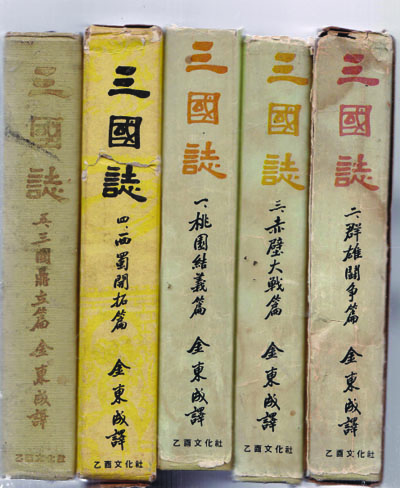 三國誌
五、三國鼎立篇 金東成譯
乙酉文化社
三國誌
四、西蜀開拓篇 金東成譯
乙酉文化社
三國誌
一、桃園結義篇 金東成譯
乙酉文化社
三國誌
三、赤壁大戰篇 金東成譯
乙酉文化社
三國誌
二、群雄鬪爭篇 金東成譯
乙酉文化社